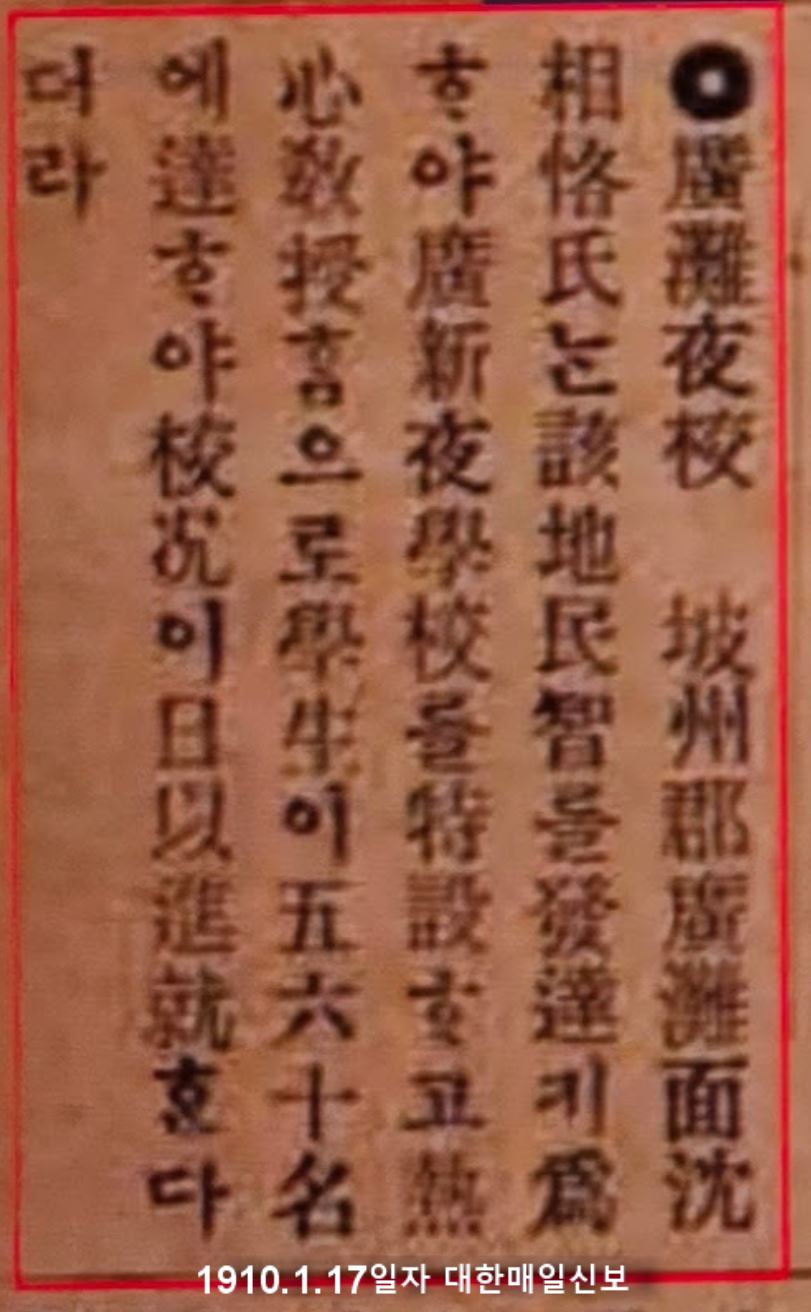 ◉廣灘夜校 坡州郡廣灘面沈
相恪氏는該地民智를發達키爲
ᄒᆞ야廣新夜學校를特設ᄒᆞ고熱
心敎授홈으로學生이五六十名
에達ᄒᆞ야校况이日以進就ᄒᆞᆫ다
더라
1910.1.17일자 대한매일신보